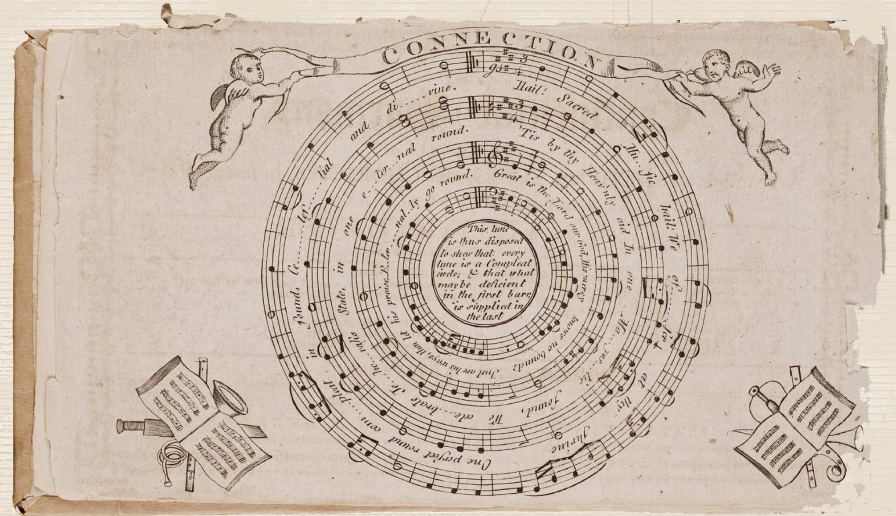 CONNECTION
Hail! Sacred Mu..sic hail! We of.....fer, at thy Shrine One perfect round com...pleat in Sound, Ce......les'......tial and di.....vine.
'Tis by thy Heav'nly aid In one Ma...jes..tic sound, We cele....brate Je...ho....vahs State, in one e...ter..nal round.
Great is the Lord our God, His mercy knows no bound; Just are his ways, then let his praise, E..ter..nal..ly go round.
This tune
is thus disposed
to shew that every
tune is a Compleat
circle; & that what
may be deficient
in the first barr
is supplied in
the last